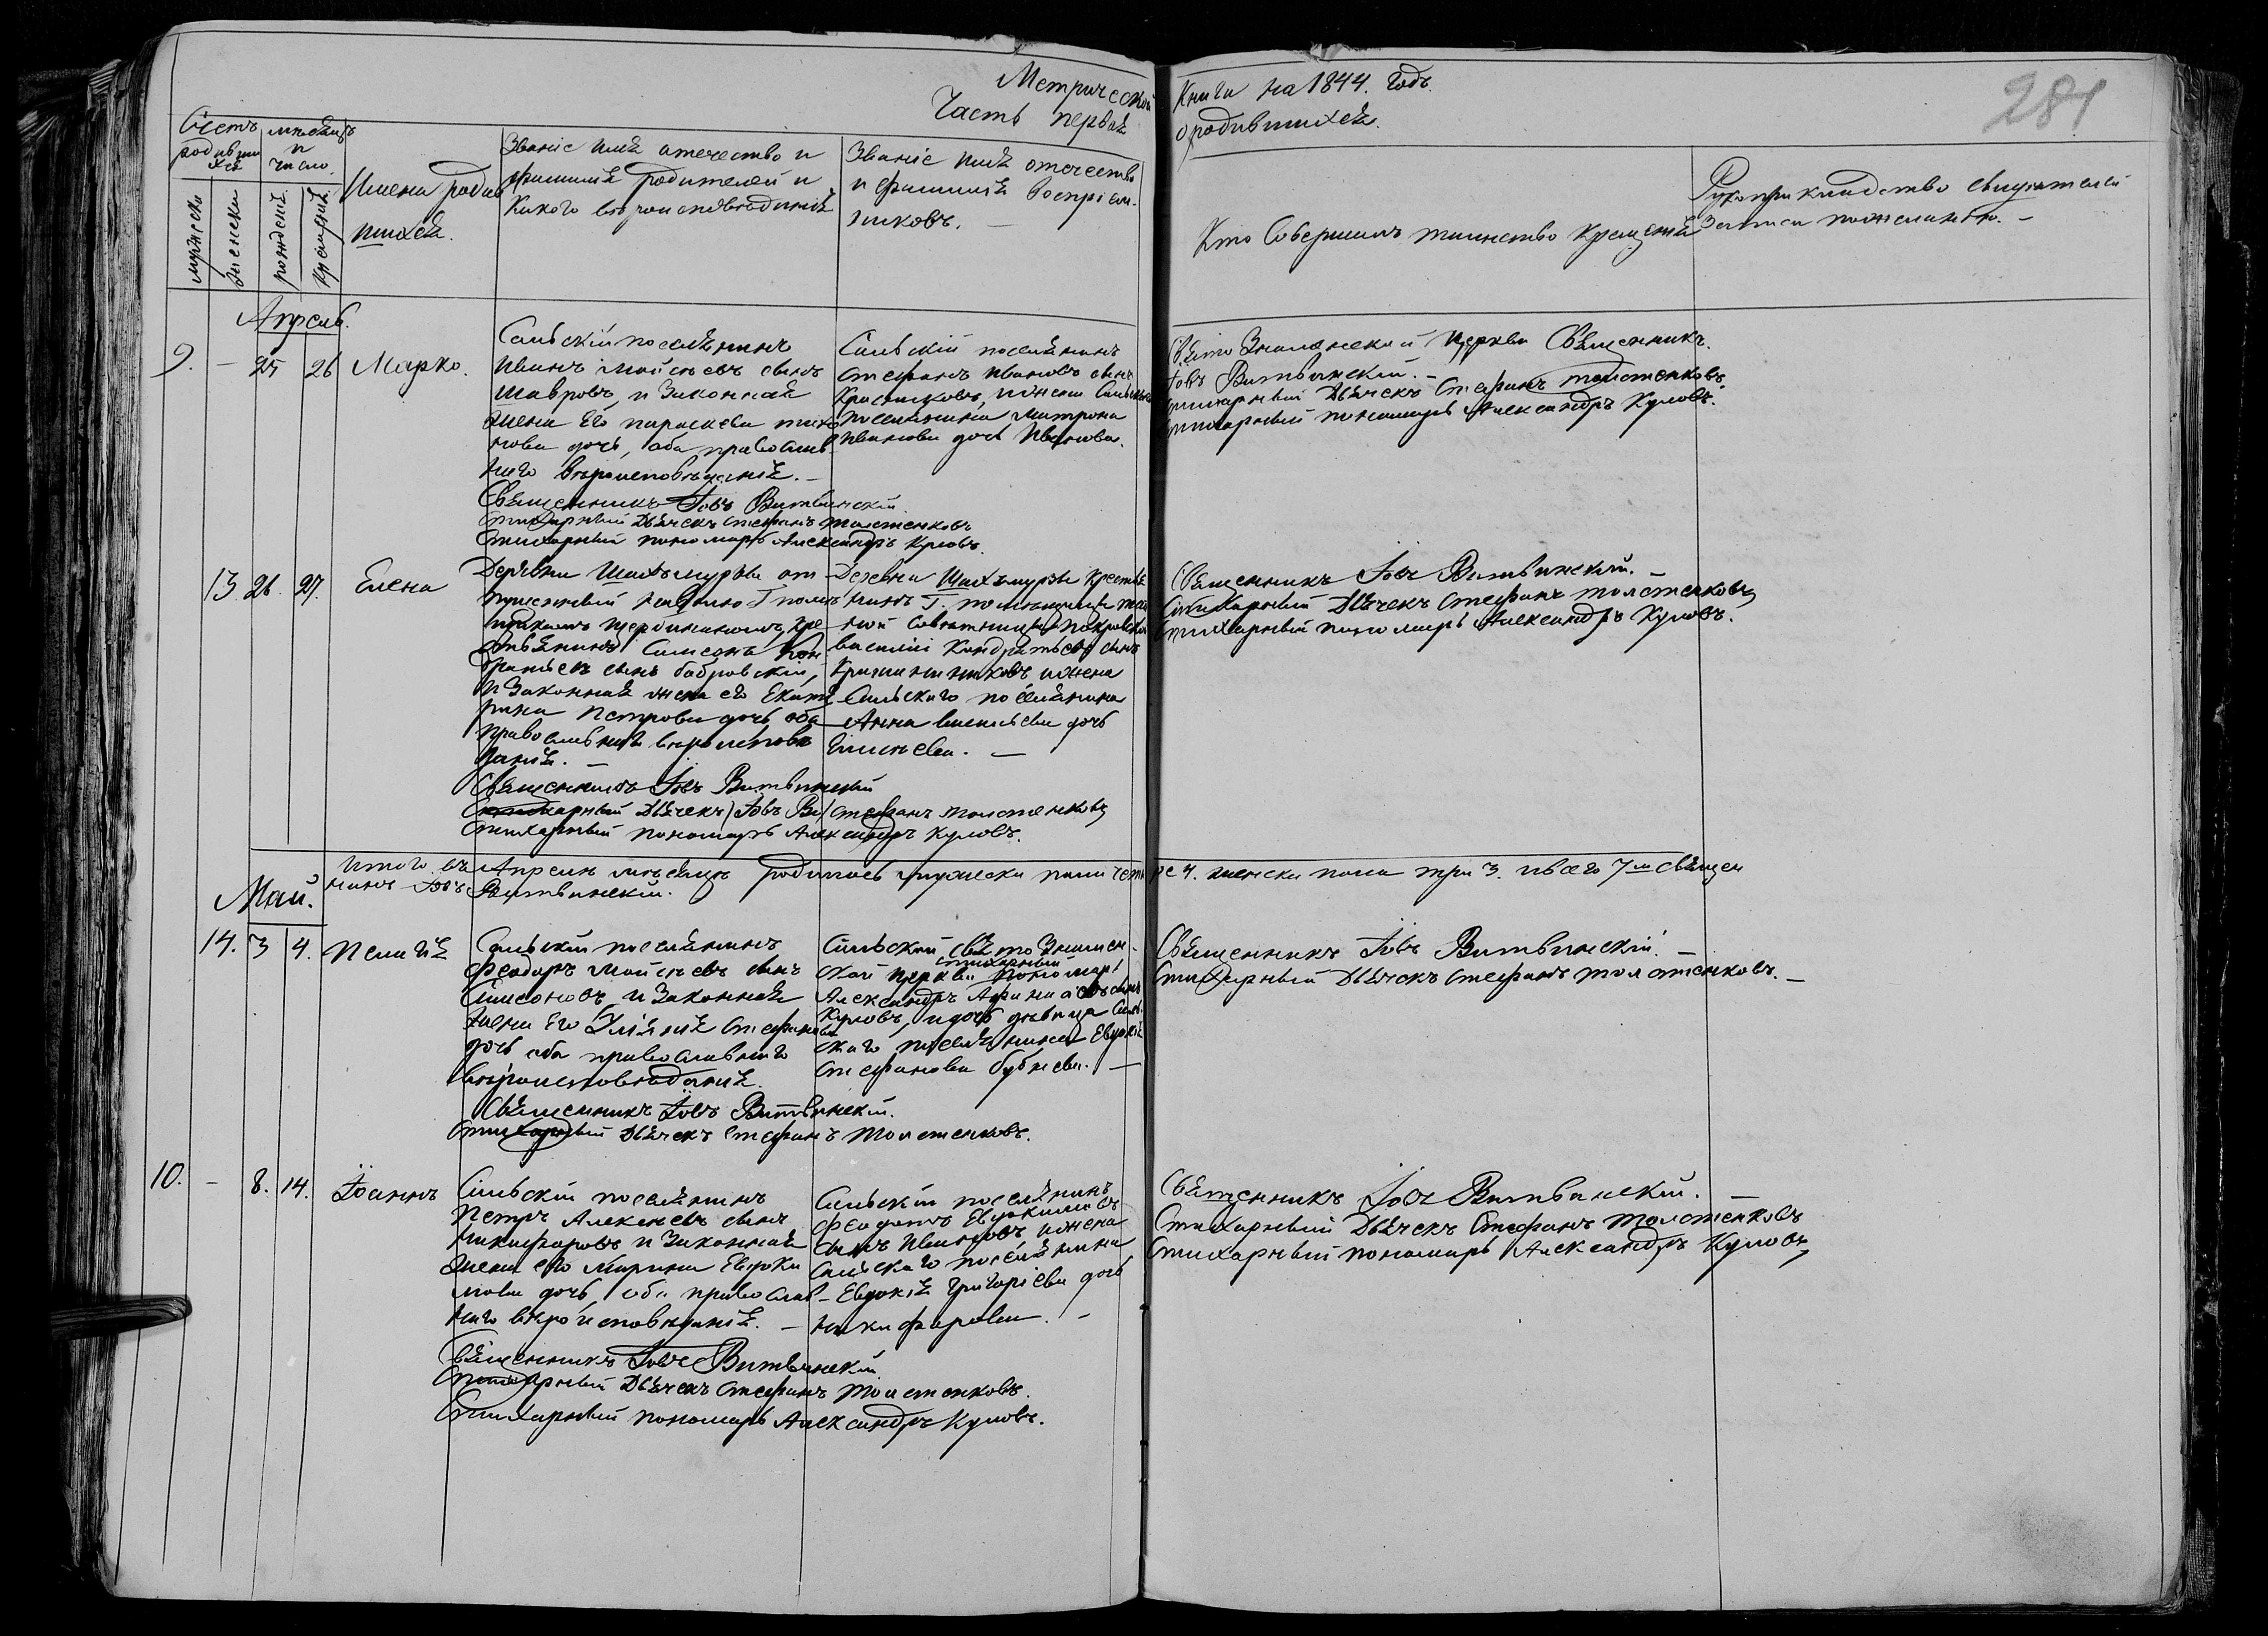 Метрической Книги на 1844. Годъ.
Часть первая о родившихся.
281
Счетъ родившихся
мужеска
женска
месяцъ и число.
рожденія
крещенія
Имена родив
шихся.
Званіе имя отечество и
фамилія родителей и
какого вероисповеданія
Званіе имя отечество
и фамилія воспріем-
никовъ. —
Кто Совершалъ таинство крещенія
Рукоприкладство свидетелей
записи по желанію. —
Апрель.
9. — 25 26 Марко.
Сельскій поселянинъ
Иванъ Мойсеевъ сынъ
Лавровъ, и Законная
жена Его параскева
дочь, оба православ-
наго вероисповеданія. —
Священникъ Іовъ Витвинскій.
Стихарный Дьячекъ Стефанъ Толстенковъ
Стихарный пономарь Александръ Куловъ.
Сельскій поселянинъ
Стефанъ Ивановъ сынъ
и жена
поселянина Матрона
Иванова дочь Иванова.
Свято Знаменской Церкви Священникъ.
Іовъ Витвинскій. —
Стихарный Дьячекъ Стефанъ Толстенковъ
Стихарный пономарь Александръ Куловъ.
13 26. 27. Елена
Деревни Шахъмурзы от-
пущенный на волю Г. поме
щикомъ Щербининымъ кре
стьянинъ Симеонъ Кон
дратьевъ сынъ бобровскій,
и Законная жена его Екате
рина Петрова дочь оба
православнаго вероисповѣ
данія. —
Священникъ Іовъ Витвинскій
Стихарный Дьячекъ Іовъ Ви Стефанъ Толстенковъ
Стихарный пономарь Александръ Куловъ.
Деревни Шахъмурзы крестья
нинъ Г. помещицы тай
ной Советницы Покровской
василій Кондратьевъ сынъ
и жена
Сельскаго поселянина
Анна васильева дочь
Свѧщенникъ Іовъ Витвинскій.
Стихарный Дьячекъ Стефанъ Толстенковъ
Стихарный пономарь Александръ Куловъ.
Итого въ Апреле месяце родилось мужеска пола четыре 4. женска пола три 3. и всего 7м Священ
никъ Іовъ Витвинскій.
Май.
14. 3 4. Пелагія
Сельскій поселянинъ
Феодоръ Мойсеевъ сынъ
Симоновъ и Законная
жена Его Уліянія Стефанова
дочь оба православнаго
вероисповеданія.
Священникъ Іовъ Витвинскій.
Стихарный Дьячекъ Стефанъ Толстенковъ.
Сельскій, Свято Знамен-
ской церкви стихарный Пономарь
Александръ Афанасіевъ сынъ
Куловъ, и дочь девица Сель-
скаго поселянина Евдокія
Стефанова бубнева. —
Священникъ Іовъ Витвинскій.
Стихарный Дьячекъ Стефанъ Толстенковъ. —
10. — 8. 14. Іоаннъ
Сельскій поселянинъ
Петръ Алексеевъ сынъ
Никифоровъ и Законная
жена его Марина Евдоки
мова дочь, оба православ-
наго веро исповеданія. —
Священникъ Іовъ Витвинскій.
Стихарный Дьячекъ Стефанъ Толстенковъ.
Стихарный пономарь Александръ Куловъ.
Сельскій поселянинъ
Феодотъ Евдокимовъ
сынъ Ивановъ, и жена
Сельскаго поселянина
Евдокія Григоріева дочь
Никифорова. —
Священникъ Іовъ Витвинскій.
Стихарный Дьячекъ Стефанъ Толстенковъ
Стихарный пономарь Александръ Куловъ